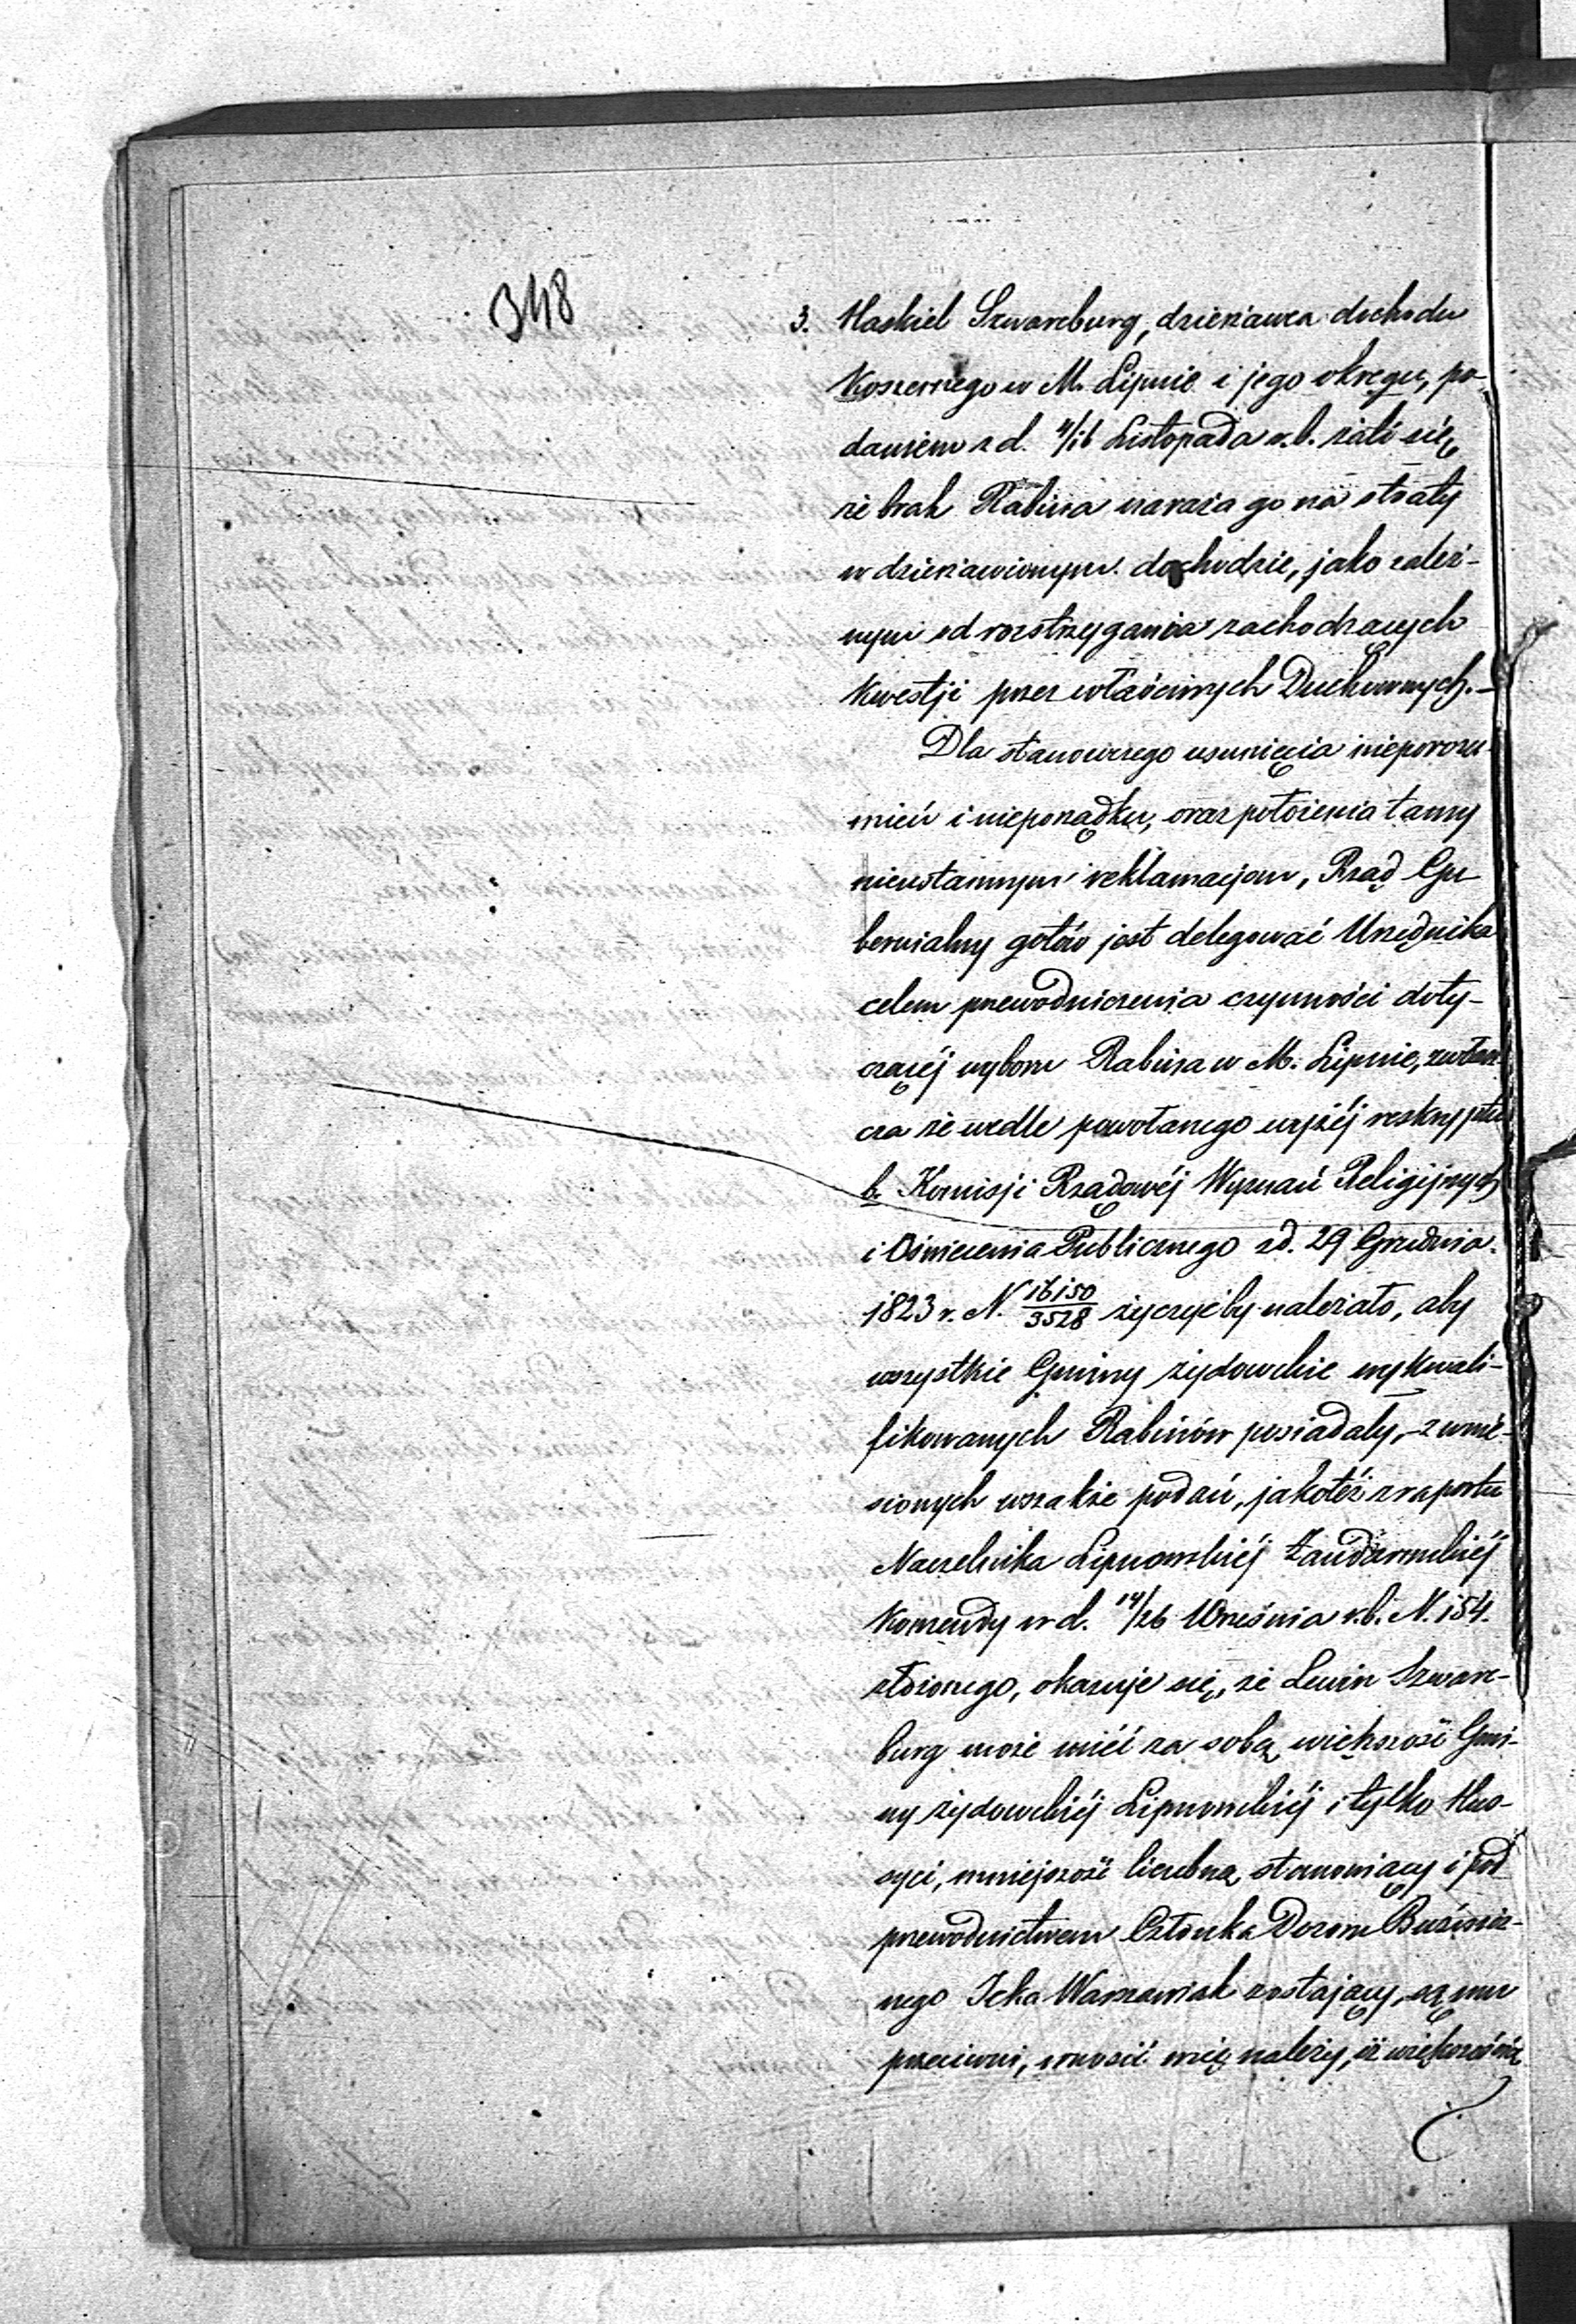 348
3. Haskiel Szwarcburg, dzierżawca dochodu
Koszernego w M. Lipnie i jego okręgu, po-
daniem z d. 4/16 Listopada r.b. żali się,
że brak Rabina naraża go na straty
w dzierżawionym dochodzie, jako zależ-
nym od rozstrzygania zachodzących
kwestji przez właściwych Duchownych. –
Dla stanowczego usunięcia nieporozu-
mień i nieporządku, oraz położenia tamy
nieustannym reklamacjom, Rząd Gu
bernialny gotów jest delegować Urzędnika
celem przewodniczenia czynności doty-
czącéj wyboru Rabina w M. Lipnie, zwłasz
cza że wedle powołanego wyżéj reskryptu
b. Komisji Rządowéj Wyznań Religijnych
i Oświecenia Publicznego z d. 29 Grudnia
1823 r. N. 16150/3528 życzyćby należało, aby
wszystkie Gminy żydowskie wykwali-
fikowanych Rabinów posiadały, – z wnie-
sionych wszakże podań, jakotéż z raportu
Naczelnika Lipnowskiéj Żandarmskiéj
Komendy w d. 14/26 Września r.b. N. 154.
złożonego, okazuje się, że Lewin Szwarc-
burg może mieć za sobą większość Gmi-
ny żydowskiéj Lipnowskiéj i tylko Hus-
syci, mniejszość liczebną stanowiący i pod
przewodnictwem Członka Dozoru Bużnicz-
nego Icka Warszawiak zostający, są mu
przeciwni, wnosić więc należy, iż większością